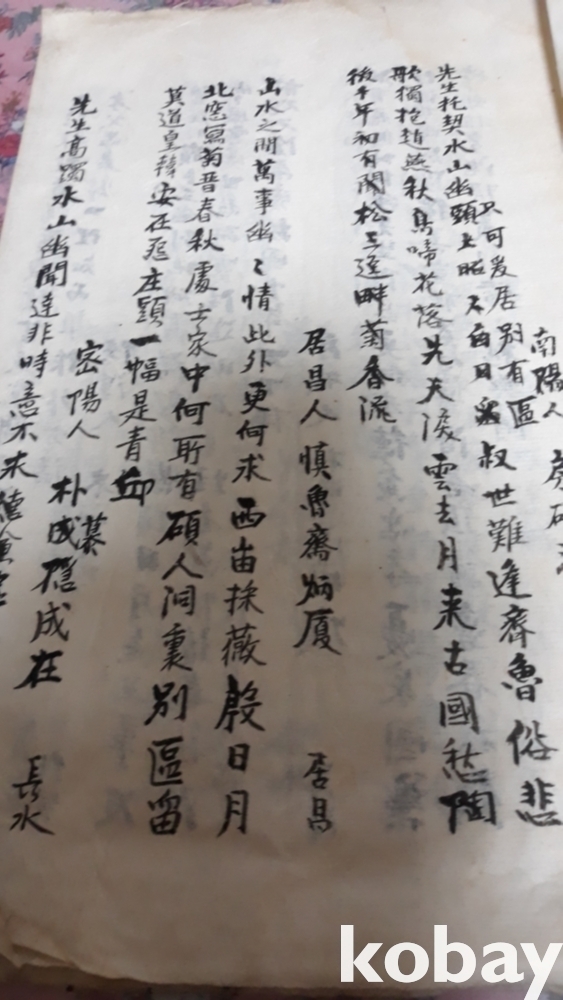 南陽人
只可爰居別有區
先生托契水山幽頭上昭々白日留叔世難逢齊魯俗悲
歌獨抱趙燕秋鳥啼花落先天後雲去月来古國愁陶
後千年初有閑松三逕畔菊香流
居昌人 慎魯齋炳厦 居昌
山水之間萬事幽々情此外更何求西畄採薇殷日月
北窓寫菊晋春秋處士家中何所有碩人洞裏別區留
箕道皇韓安在 庄顕一幅是青邱
密陽人 朴成穩成在 長水
先生高躅水山幽聞達非時意不求
kobay